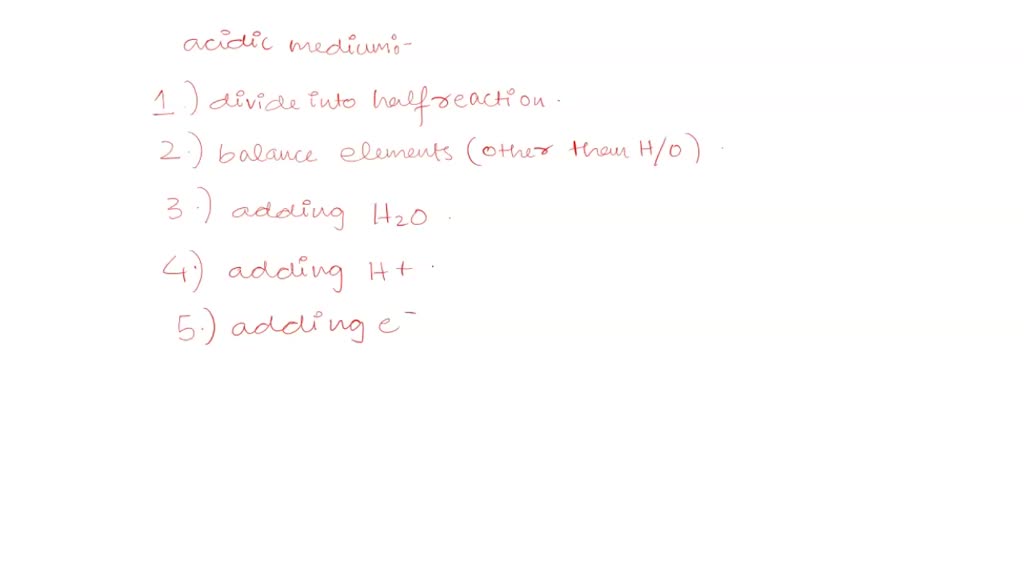 acidic medium:-
1.) divide into half reaction.
2.) balance elements (other than H/O).
3.) adding H₂O.
4.) adding H+.
5.) adding e⁻